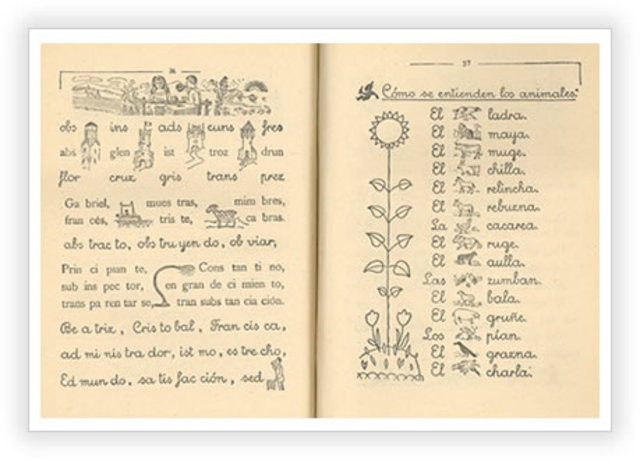 36
obs ins ads cuns fres
abs glen ist troz drun
flor cruz gris trans prez
Ga briel, mues tras, mim bres,
fran cés, tris te, ca bras.
abs trac to, obs tru yen do, ob viar,
Prin ci pian te, Cons tan ti no,
sub ins pec tor, en gran de ci mien to,
trans pa ren tar se, tran subs tan cia ción.
Be a triz, Cris to bal, Fran cis ca,
ad mi nis tra dor, ist mo, es tre cho,
Ed mun do, sa tis fac ción, sed
37
Cómo se entienden los animales
El ladra.
El maya.
El muge.
El chilla.
El relincha.
El rebuzna.
La cacarea.
El ruge.
El aulla.
Las zumban.
El bala.
El gruñe.
Los pian.
El grazna.
El charla.